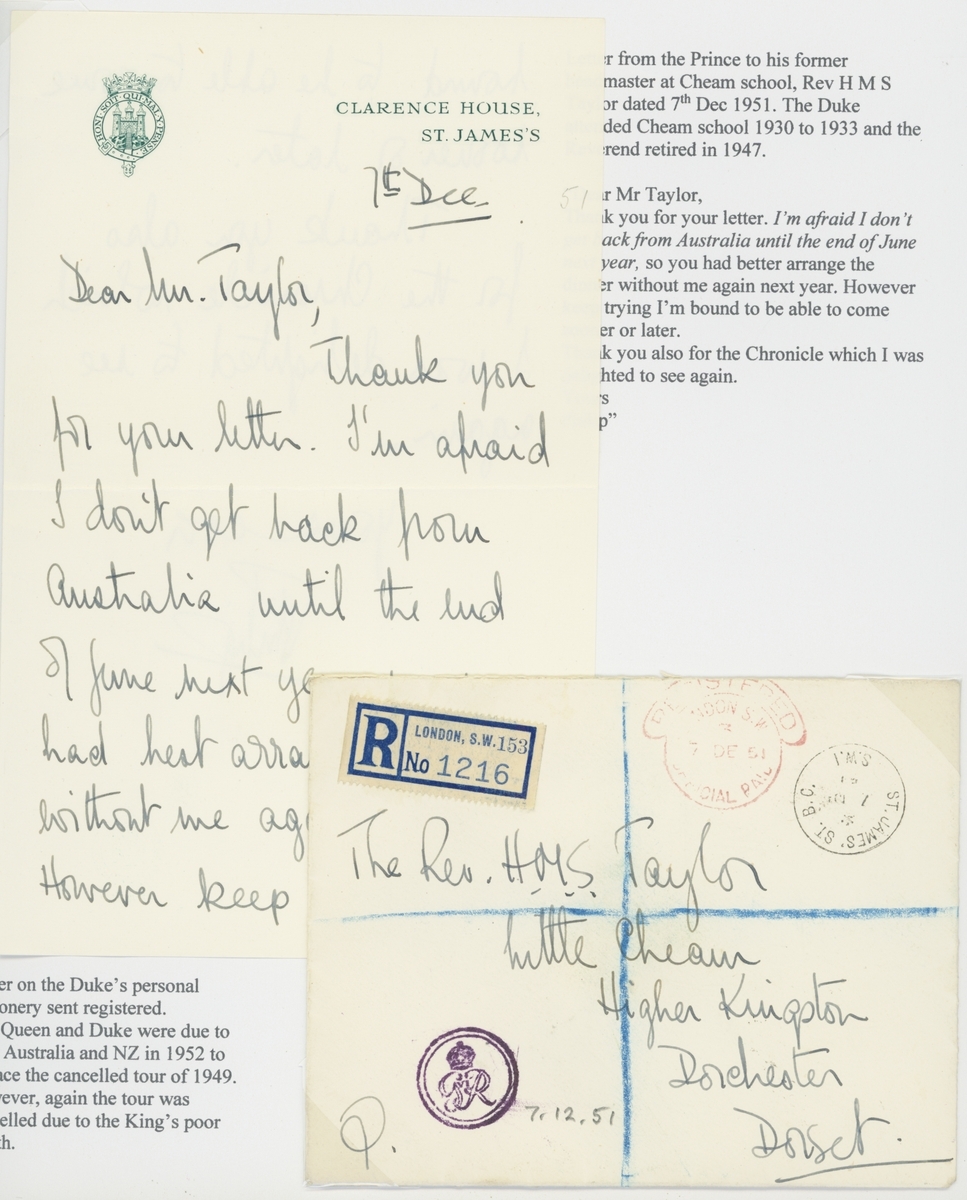 HONI·SOIT·QUI·MAL·Y·PENSE
CLARENCE HOUSE,
ST. JAMES'S
7th Dec.
51
Dear Mr. Taylor,
Thank you
for your letter. I'm afraid
I don't get back from
Australia until the end
of June next ye
had best arra
without me aga
However keep
r from the Prince to his former
master at Cheam school, Rev H M S
or dated 7th Dec 1951. The Duke
ded Cheam school 1930 to 1933 and the
erend retired in 1947.
r Mr Taylor,
k you for your letter. I'm afraid I don't
ack from Australia until the end of June
year, so you had better arrange the
er without me again next year. However
trying I'm bound to be able to come
er or later.
k you also for the Chronicle which I was
hted to see again.
rs
p”
er on the Duke's personal
onery sent registered.
Queen and Duke were due to
Australia and NZ in 1952 to
ace the cancelled tour of 1949.
vever, again the tour was
elled due to the King's poor
th.
R
LONDON, S.W. 153
No 1216
REGISTERED
LONDON S.W.
7 DE 51
OFFICIAL PAID
ST. JAMES' ST. B.O.
The Rev. H.M.S. Taylor
Little Cheam
Higher Kingston
Dorchester
Dorset.
GR
7.12.51
P.